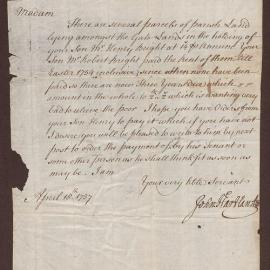 Madam
There are several parcels of parish Land
lying amongst the Gate Lands in the holding of
your Son Mr Henry Knight at 14s p Annum Your
Son Mr Robert Knight paid the Rent of them till
Easter 1754 inclusive, since others none have been
paid so there are now Three Years Due which
amount in the whole to £2:2s wanting very
bad to relieve the poor I hope you have Orders from
your Son Henry to pay it which if you have not
I desire you will be pleased to write to him by next
post to order the payment of by his Tenant or
some other person as he shall think fit as soon as
may be. I am
Your very hble Servant
John
April 18th 1757